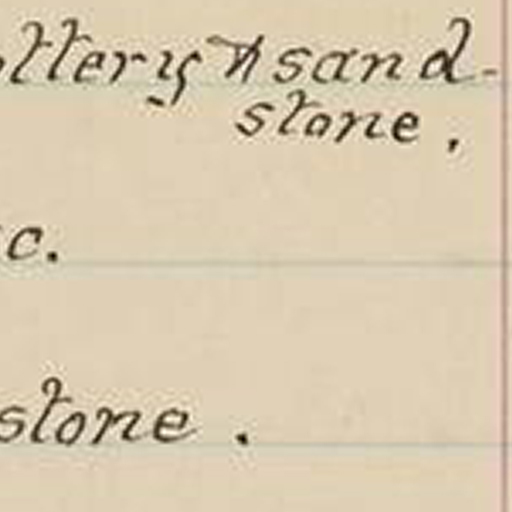 ottery & sand-
stone.
c.
stone.